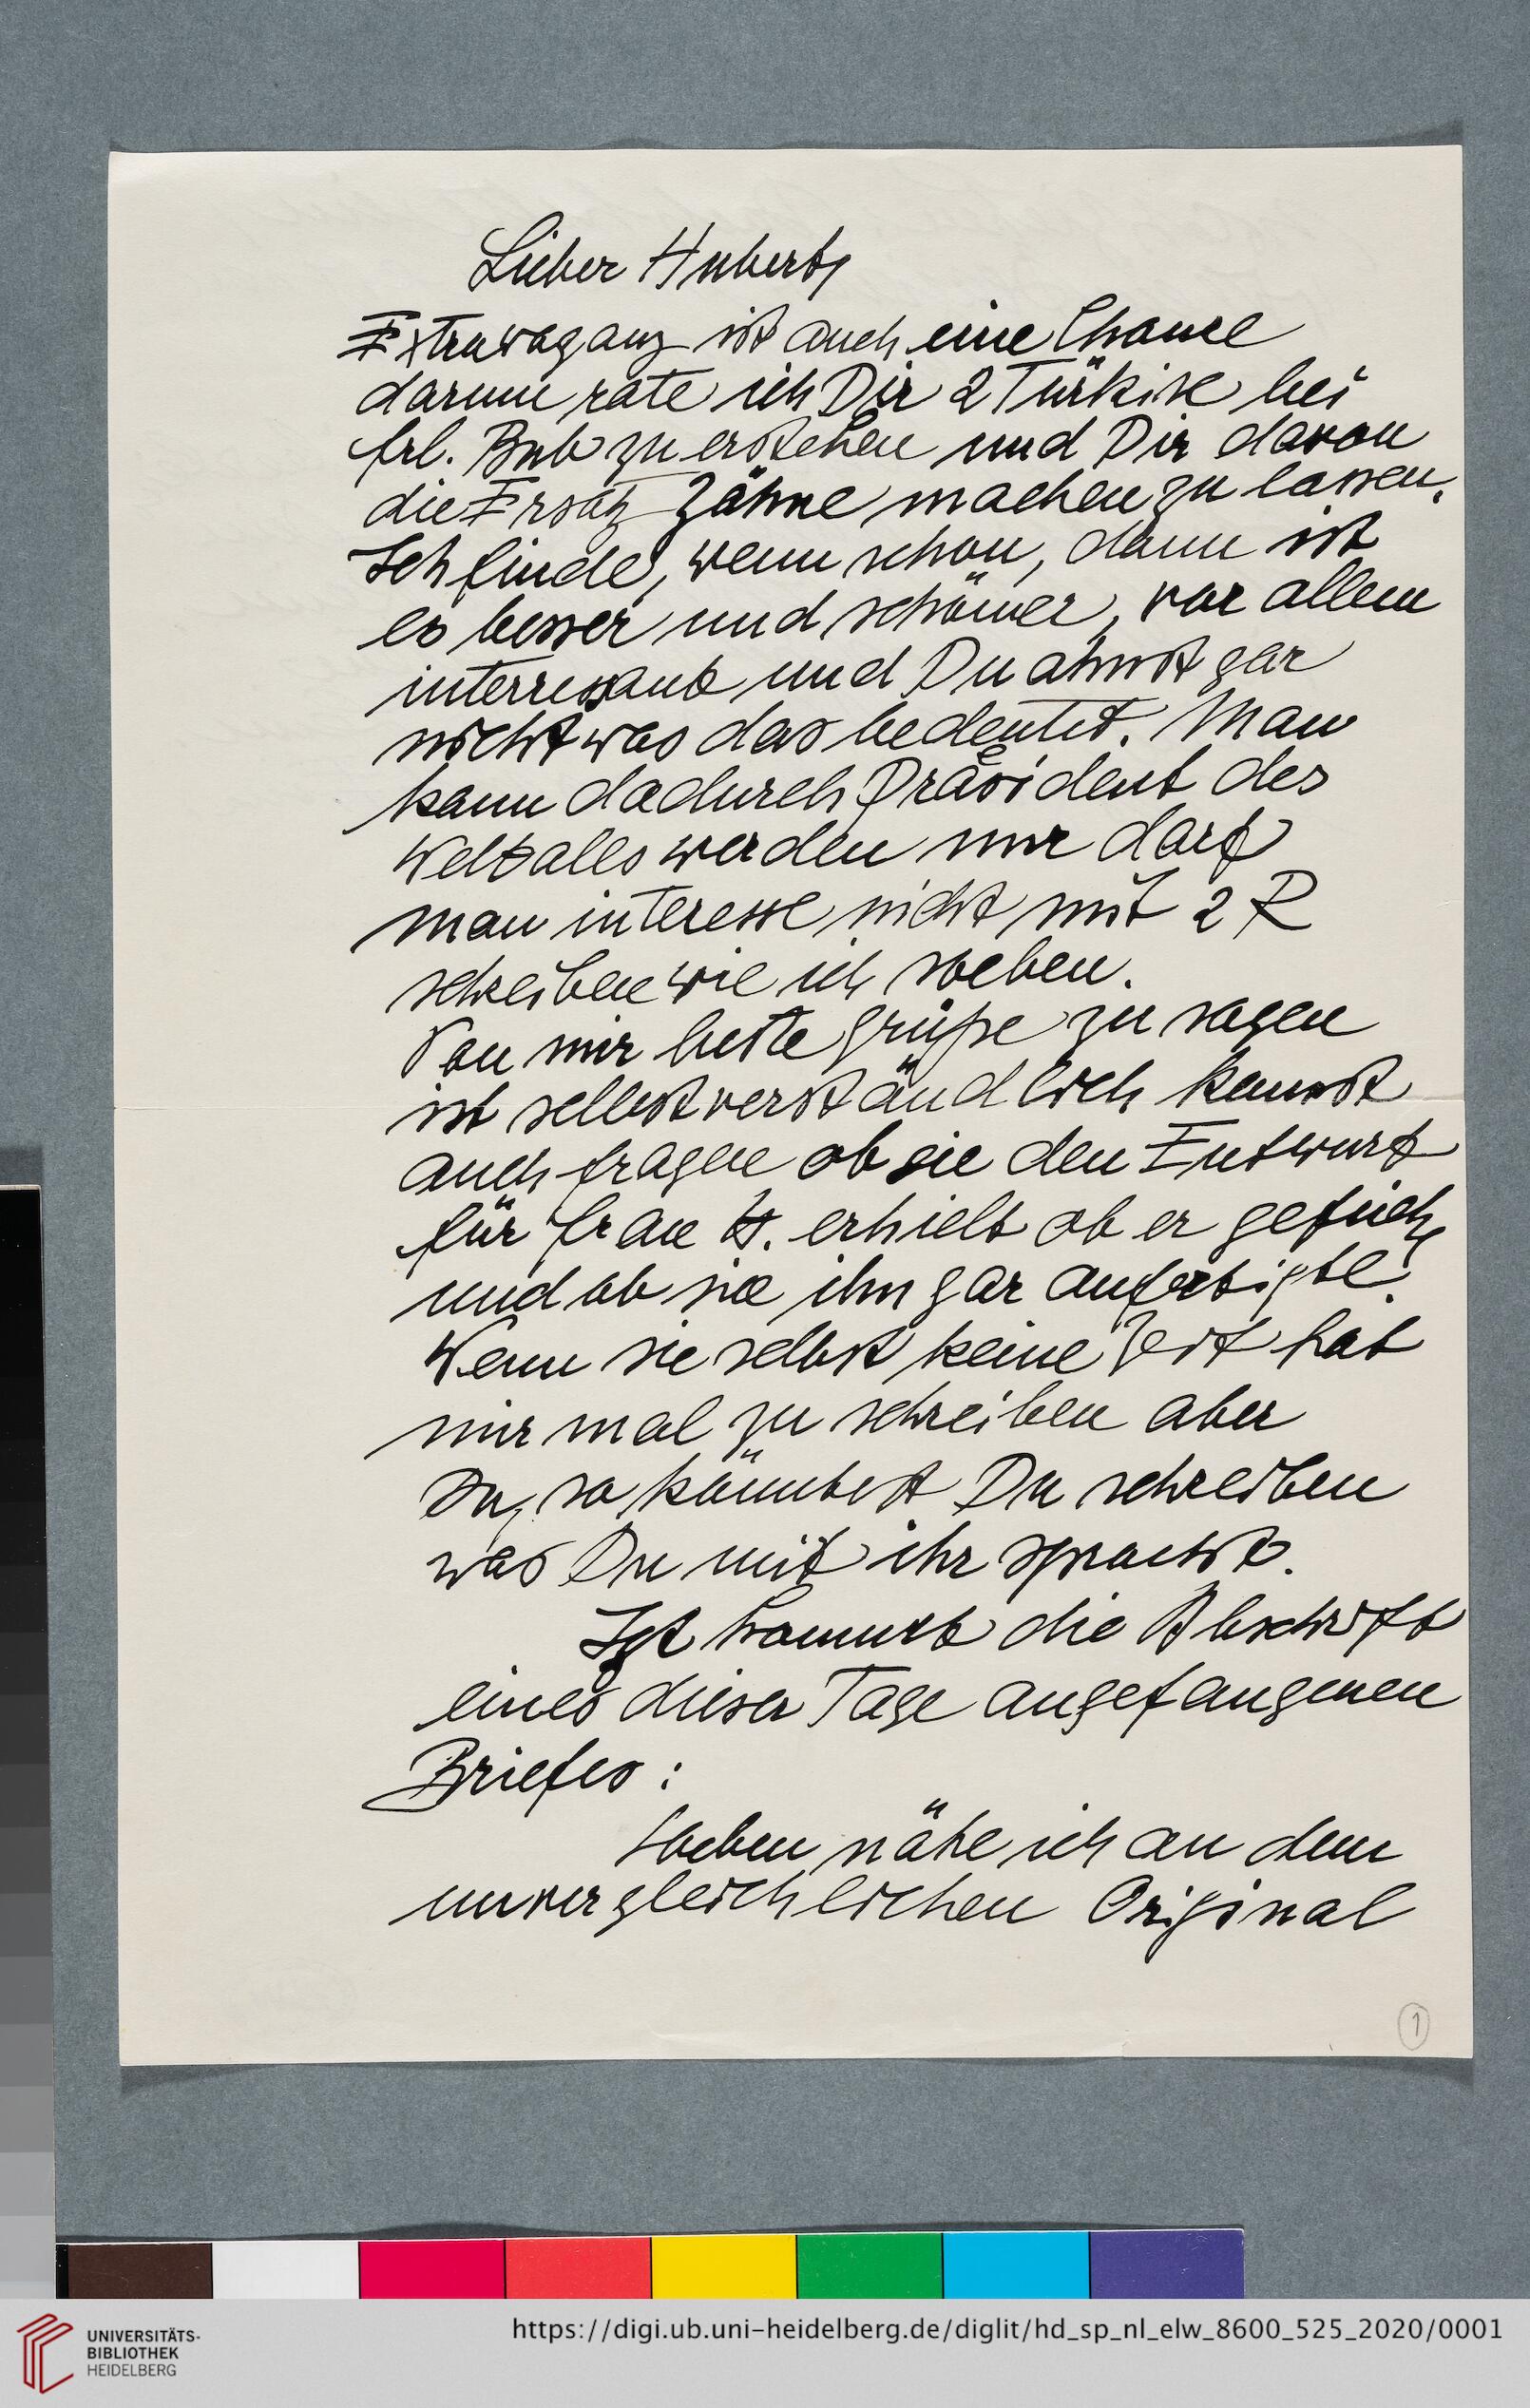 Lieber Hubert,
Extravaganz ist auch eine Chance
darum rate ich Dir 2 Türkise bei
frl. Bub zu erstehen und Dir davon
die Ersatz Zähne machen zu lassen.
Ich finde, wenn schon, dann ist
es besser und schöner, vor allem
interressant und Du ahnst gar
nicht was das bedeutet. Man
kann dadurch Präsident des
Weltalls werden nur darf
man interesse nicht mit 2 R
schreiben wie ich soeben.
Von mir beste Grüße zu sagen
ist selbstverständlich kannst
auch fragen ob sie den Entwurf
für frau H. erhielt ob er gefiel,
und ob sie ihn gar anfertigte?
Wenn sie selbst keine Zeit hat
mir mal zu schreiben aber
Du, so könntest Du schreiben
was Du mit ihr sprachst.
Jzt kommt die Abschrift
eines dieser Tage angefangenen
Briefes:
Soeben nähe ich an dem
unvergleichlichen Original
1
UNIVERSITÄTS-
BIBLIOTHEK
HEIDELBERG
https://digi.ub.uni-heidelberg.de/diglit/hd_sp_nl_elw_8600_525_2020/0001